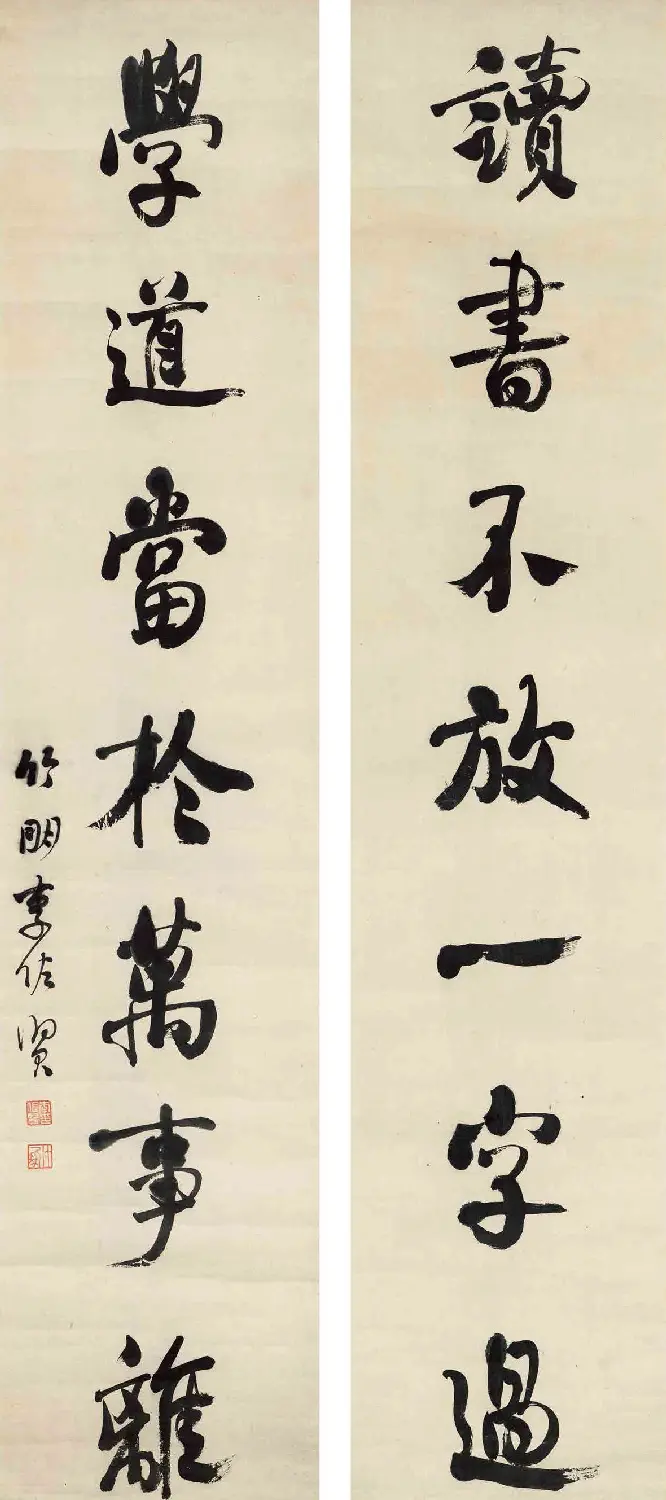 讀書不放一字過
學道當於萬事離
竹朋李佐賢